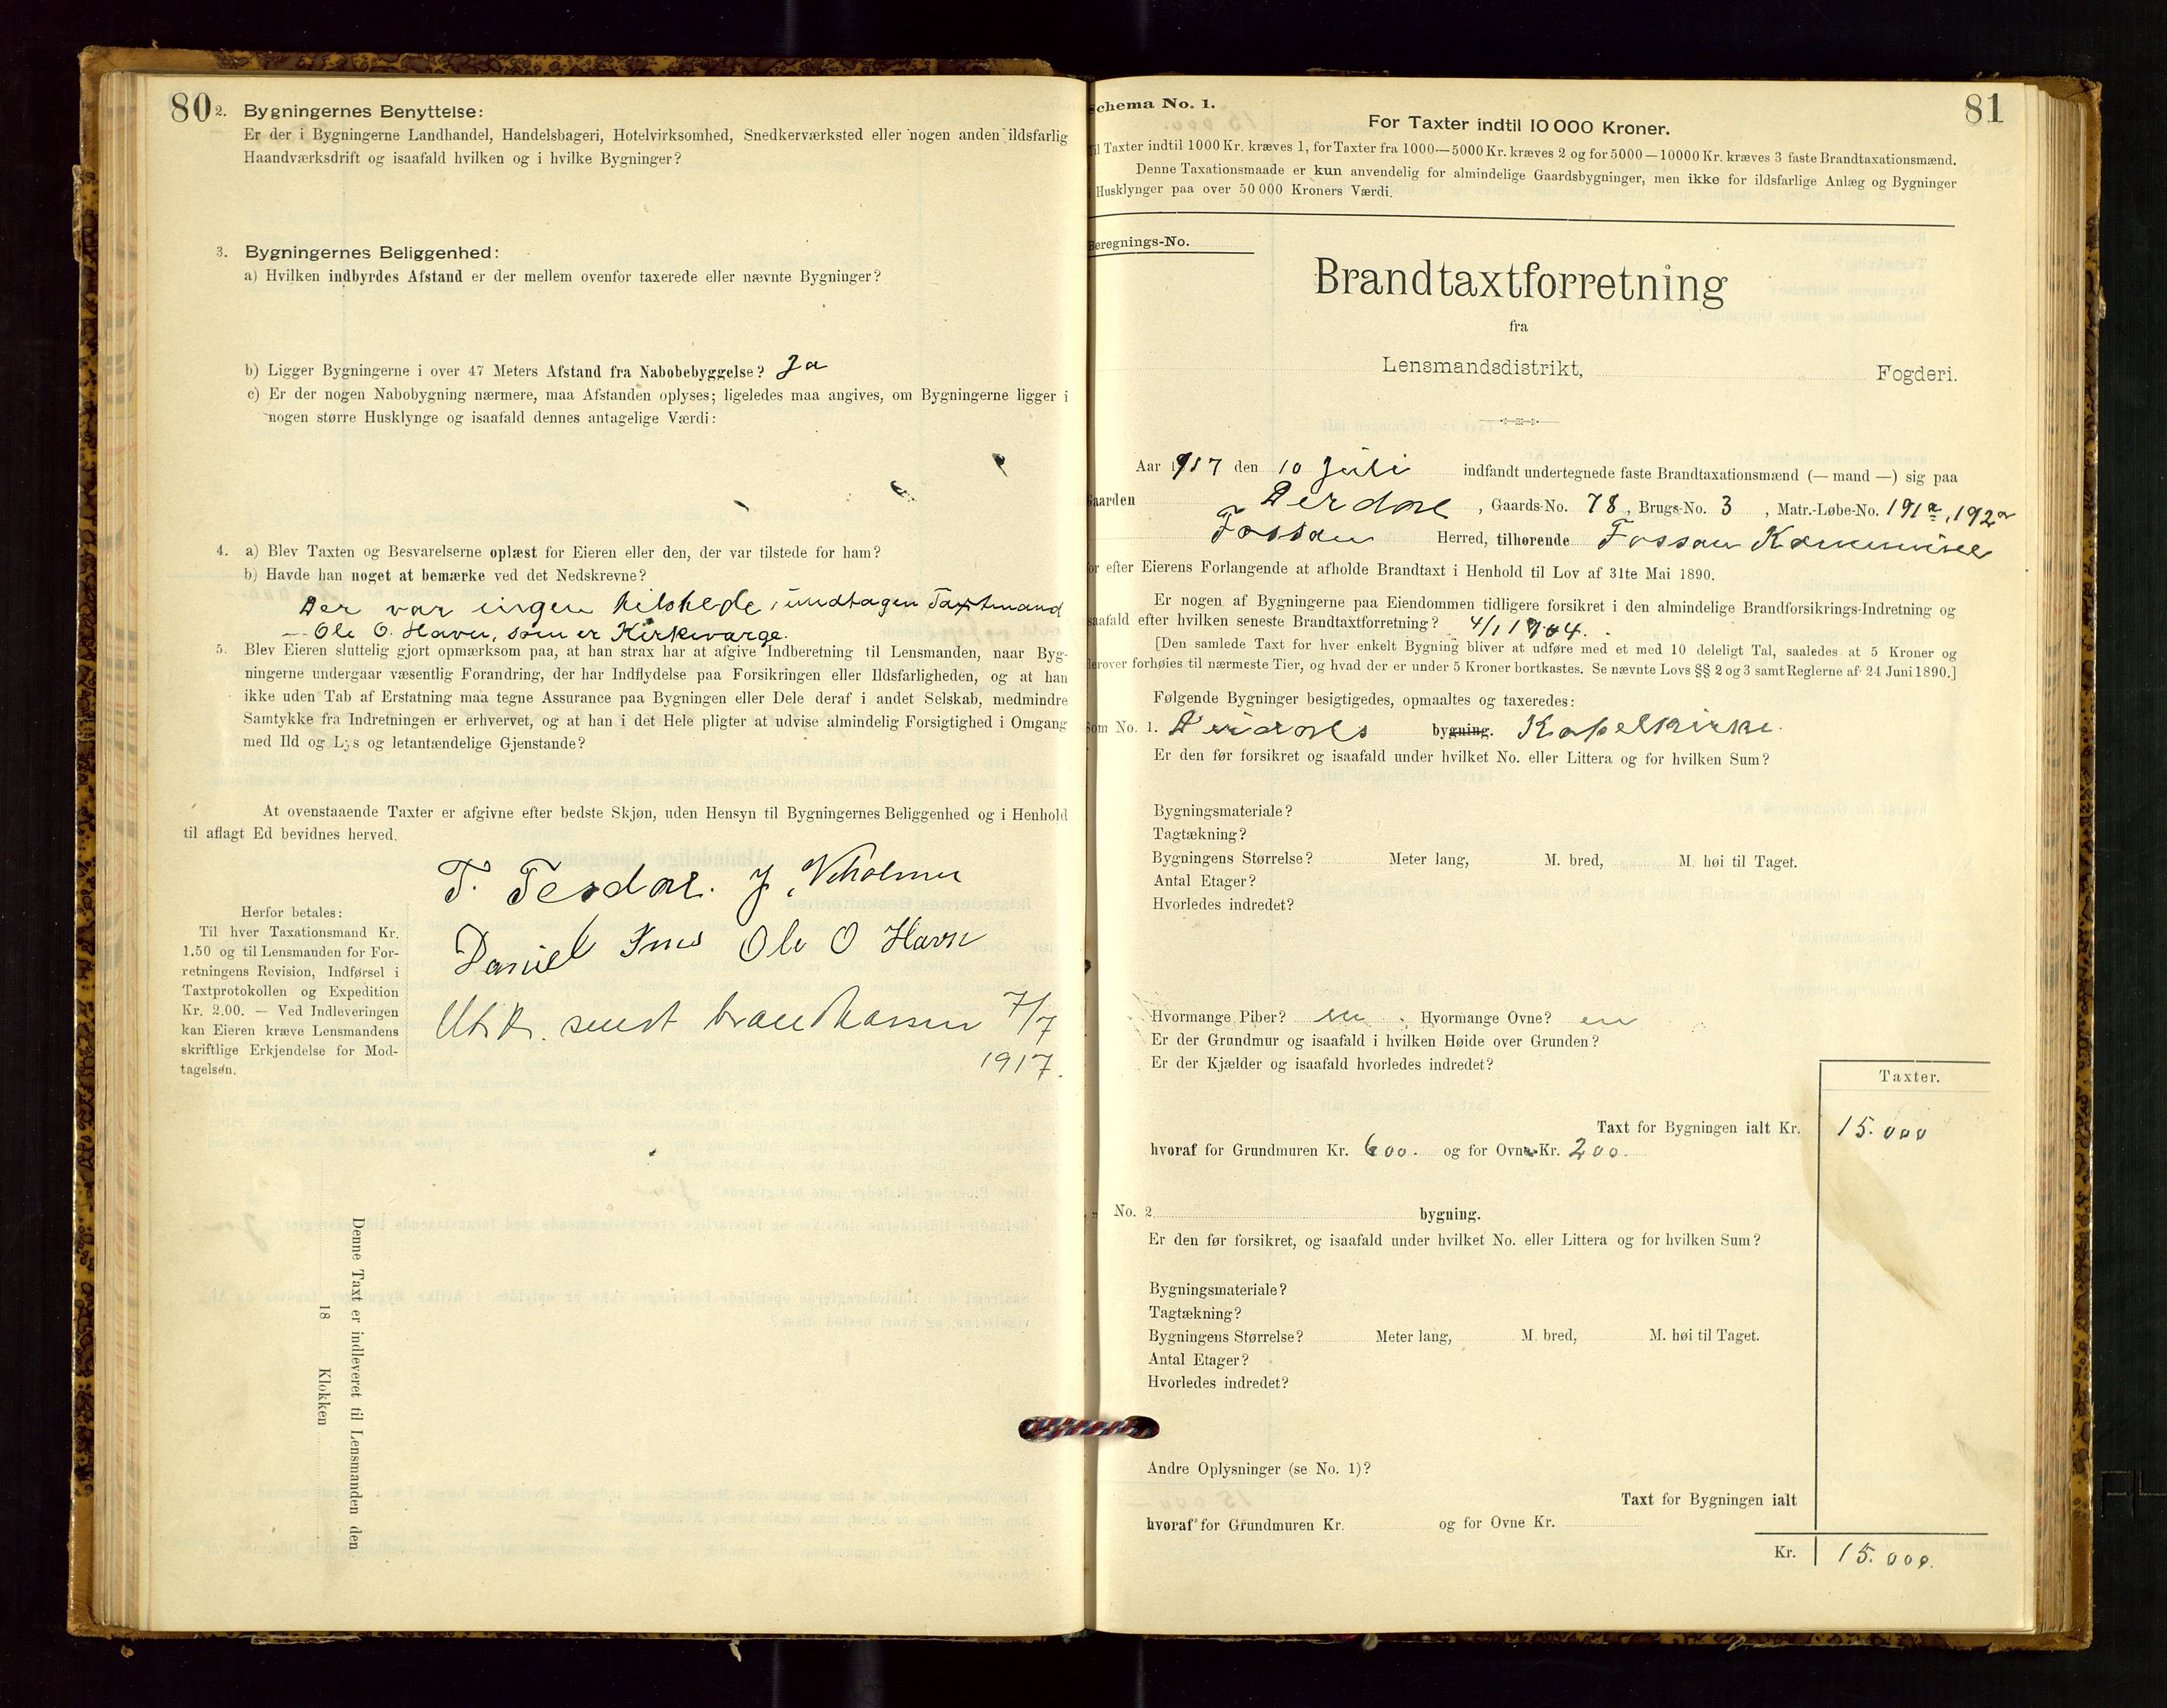 80
2. Bygningernes Benyttelse:
Er der i Bygningerne Landhandel, Handelsbageri, Hotelvirksomhed, Snedkerværksted eller nogen anden ildsfarlig
Haandværksdrift og isaafald hvilken og i hvilke Bygninger?
3. Bygningernes Beliggenhed:
a) Hvilken indbyrdes Afstand er der mellem ovenfor taxerede eller nævnte Bygninger?
b) Ligger Bygningerne i over 47 Meters Afstand fra Nabobebyggelse? Ja
c) Er der nogen Nabobygning nærmere, maa Afstanden oplyses; ligeledes maa angives, om Bygningerne ligger i
nogen større Husklynge og isaafald dennes antagelige Værdi:
4. a) Blev Taxten og Besvarelserne oplæst for Eieren eller den, der var tilstede for ham?
b) Havde han noget at bemærke ved det Nedskrevne?
Der var ingen tilstede, undtagen Taxtmand
Ole O. Havn, som er Kirkeværge.
5. Blev Eieren sluttelig gjort opmærksom paa, at han strax har at afgive Indberetning til Lensmanden, naar Byg-
ningerne undergaar væsentlig Forandring, der har Indflydelse paa Forsikringen eller Ildsfarligheden, og at han
ikke uden Tab af Erstatning maa tegne Assurance paa Bygningen eller Dele deraf i andet Selskab, medmindre
Samtykke fra Indretningen er erhvervet, og at han i det Hele pligter at udvise almindelig Forsigtighed i Omgang
med Ild og Lys og letantændelige Gjenstande?
At ovenstaaende Taxter er afgivne efter bedste Skjøn, uden Hensyn til Bygningernes Beliggenhed og i Henhold
til aflagt Ed bevidnes herved.
T. Tesdal. J
Daniel Ole O Havn
Herfor betales:
Til hver Taxationsmand Kr.
1.50 og til Lensmanden for For-
retningens Revision, Indførsel i
Taxtprotokollen og Expedition
Kr. 2.00. — Ved Indleveringen
kan Eieren kræve Lensmandens
skriftlige Erkjendelse for Mod-
tagelsen.
sendt brandkassen 7/7
1917.
Denne Taxt er indleveret til Lensmanden den
18 Klokken
81
Schema No. 1.
For Taxter indtil 10 000 Kroner.
Til Taxter indtil 1000 Kr. kræves 1, for Taxter fra 1000—5000 Kr. kræves 2 og for 5000—10000 Kr. kræves 3 faste Brandtaxationsmænd.
Denne Taxationsmaade er kun anvendelig for almindelige Gaardsbygninger, men ikke for ildsfarlige Anlæg og Bygninger
i Husklynger paa over 50 000 Kroners Værdi.
Beregnings-No.
Brandtaxtforretning
fra
Lensmandsdistrikt, Fogderi.
Aar 1917 den 10 Juli indfandt undertegnede faste Brandtaxationsmænd (— mand —) sig paa
Gaarden Dirdal, Gaards-No. 78, Brugs-No. 3, Matr.-Løbe-No. 191a, 192a
Fossan Herred, tilhørende Fossan Kommune
for efter Eierens Forlangende at afholde Brandtaxt i Henhold til Lov af 31te Mai 1890.
Er nogen af Bygningerne paa Eiendommen tidligere forsikret i den almindelige Brandforsikrings-Indretning og
isaafald efter hvilken seneste Brandtaxtforretning? 4/1 1904.
[Den samlede Taxt for hver enkelt Bygning bliver at udføre med et med 10 deleligt Tal, saaledes at 5 Kroner og
derover forhøies til nærmeste Tier, og hvad der er under 5 Kroner bortkastes. Se nævnte Lovs §§ 2 og 3 samt Reglerne af 24 Juni 1890.]
Følgende Bygninger besigtigedes, opmaaltes og taxeredes:
Som No. 1. Dirdals bygning. Kapelkirke.
Er den før forsikret og isaafald under hvilket No. eller Littera og for hvilken Sum?
Bygningsmateriale?
Tagtækning?
Bygningens Størrelse? Meter lang, M. bred, M. høi til Taget.
Antal Etager?
Hvorledes indredet?
Hvormange Piber? en. Hvormange Ovne? en
Er der Grundmur og isaafald i hvilken Høide over Grunden?
Er der Kjælder og isaafald hvorledes indredet?
Taxter.
Taxt for Bygningen ialt Kr. 15.000
hvoraf for Grundmuren Kr. 600. og for Ovne Kr. 200.
" No. 2 bygning.
Er den før forsikret, og isaafald under hvilket No. eller Littera og for hvilken Sum?
Bygningsmateriale?
Tagtækning?
Bygningens Størrelse? Meter lang, M. bred, M. høi til Taget.
Antal Etager?
Hvorledes indredet?
Andre Oplysninger (se No. 1)?
Taxt for Bygningen ialt
hvoraf for Grundmuren Kr. og for Ovne Kr.
Kr. 15.000.